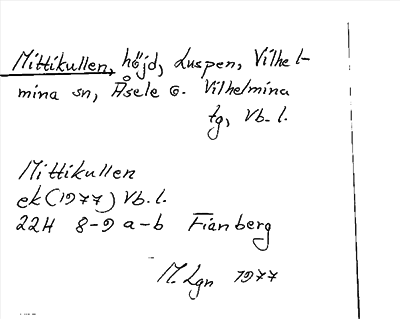 Mittikullen, höjd, Luspen, Vilhel-
mina sn, Åsele o. Vilhelmina
tg, Vb. l.
Mittikullen
ek (1977) Vb. l.
22H 8-9 a-b Fianberg
M. Lgn 1977